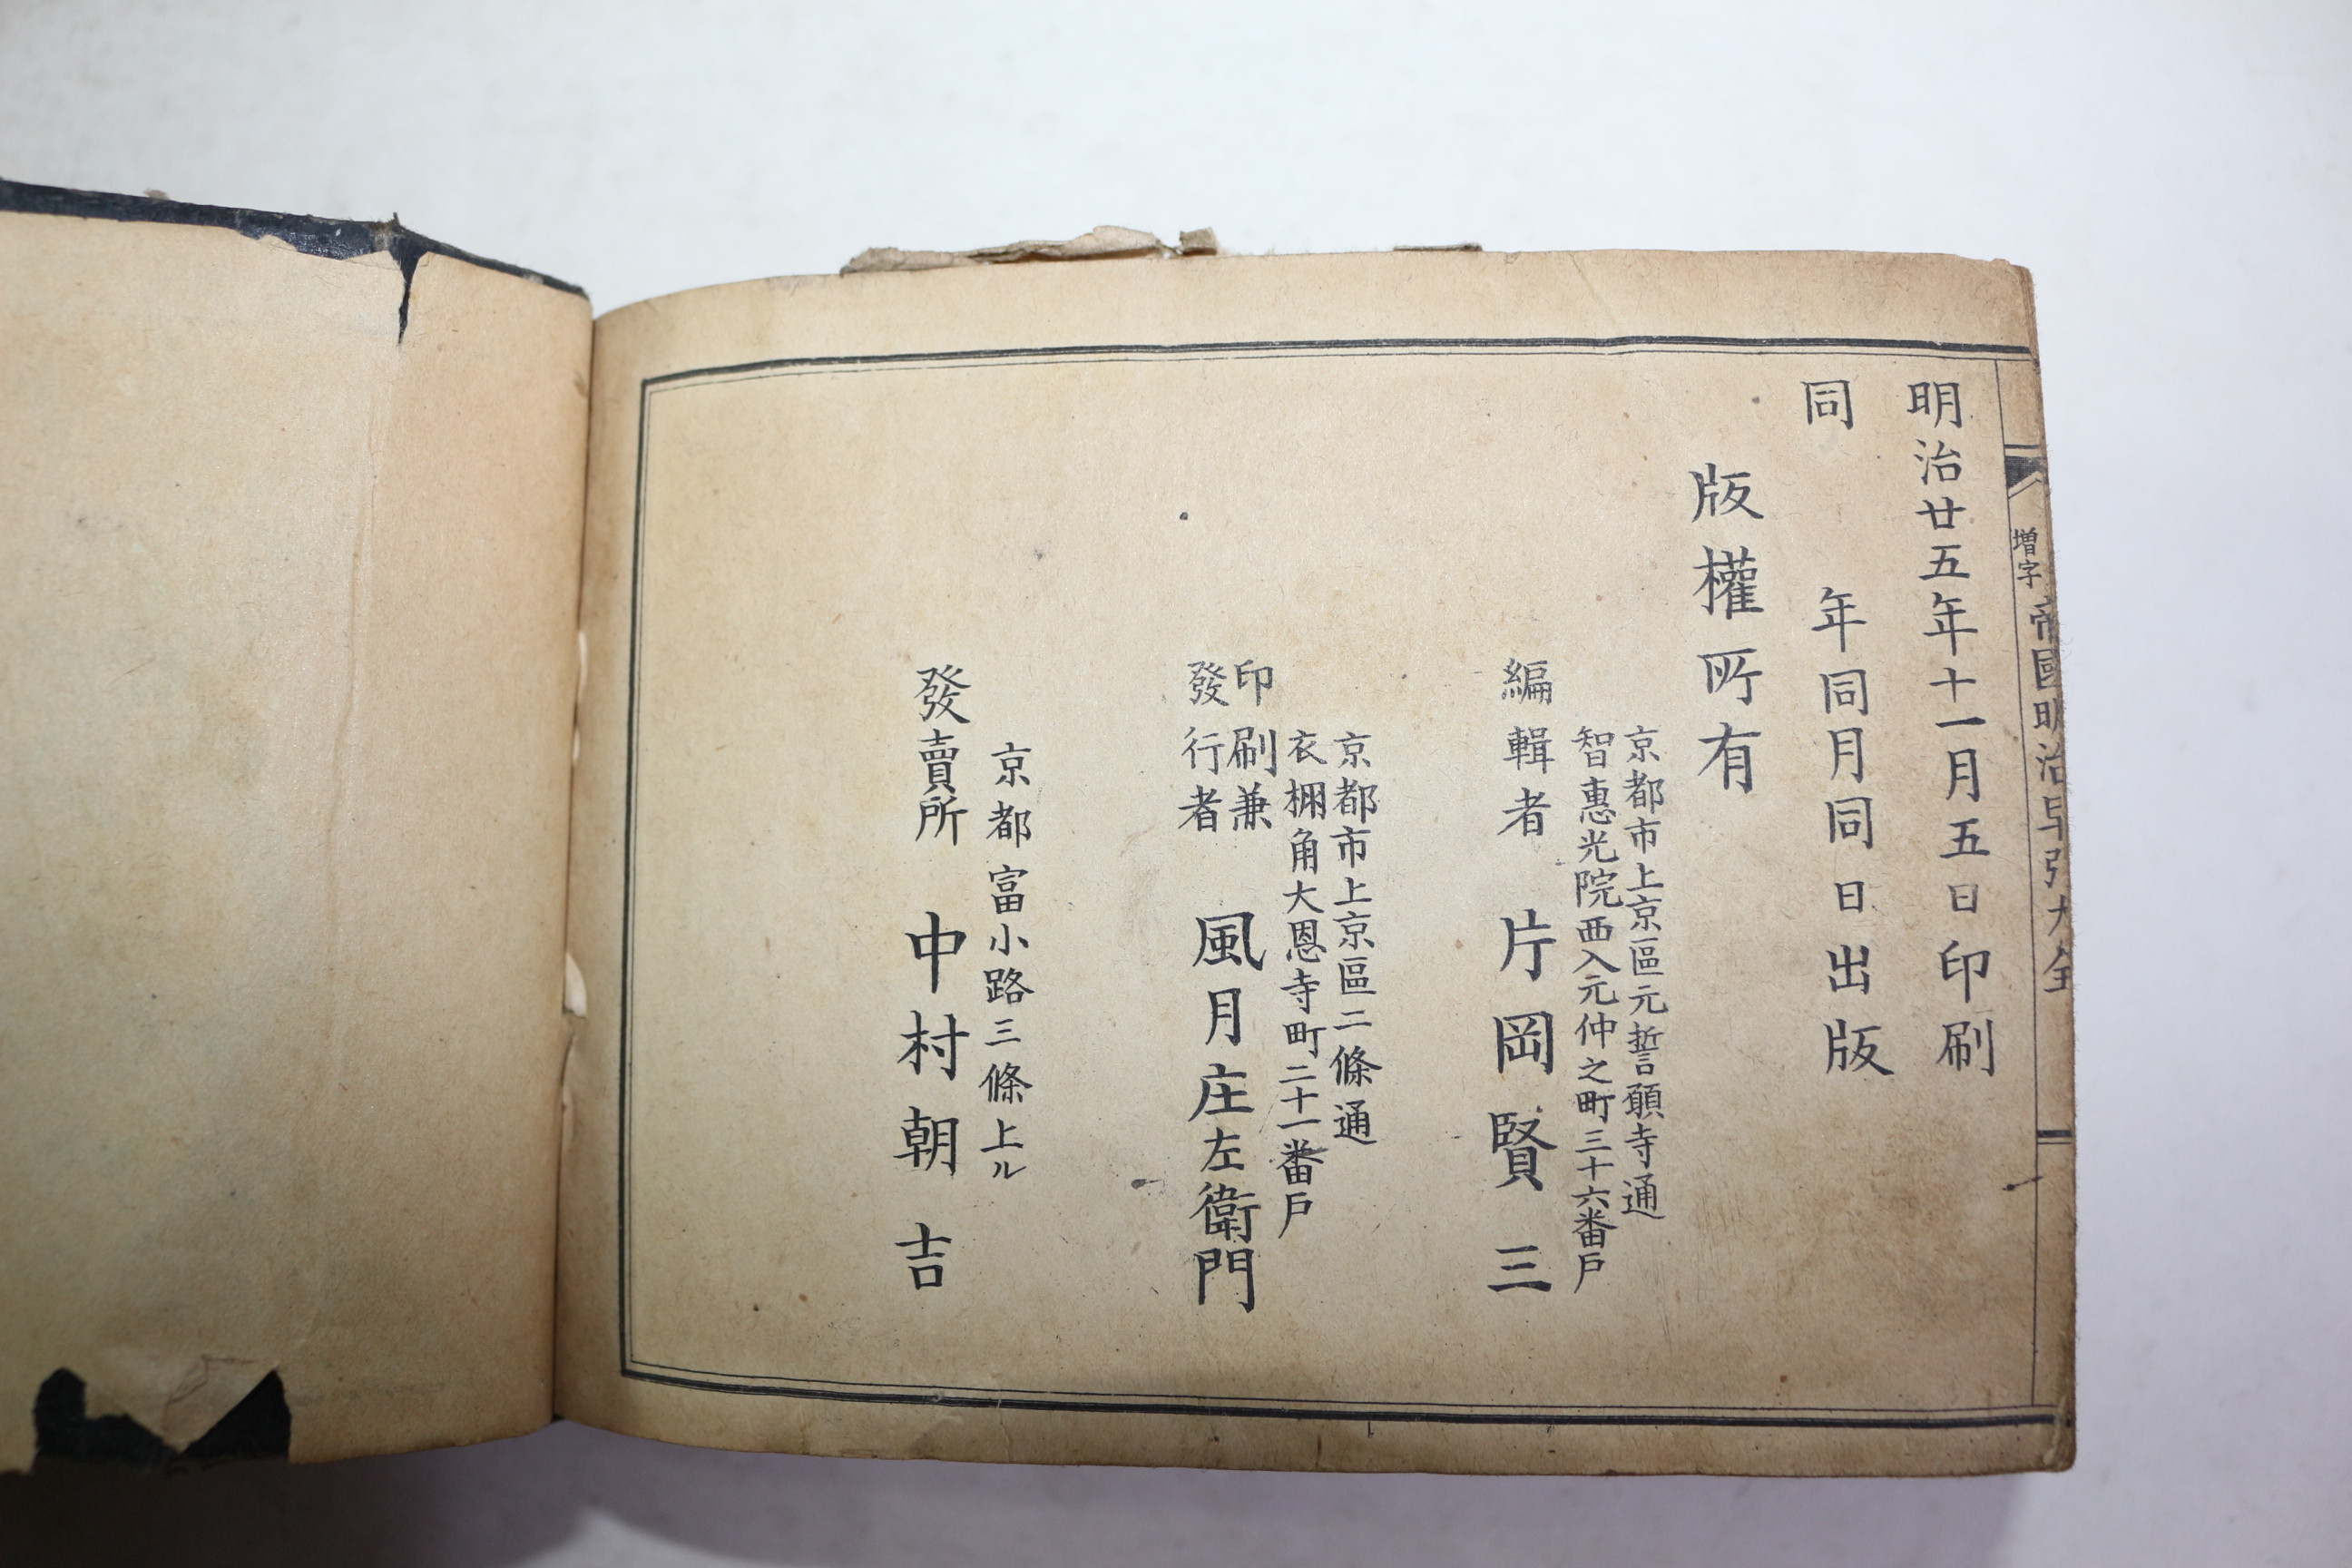 増字 帝國明治早引大全
明治廿五年十一月五日印刷
同年同月同日出版
版權所有
京都市上京區元誓願寺通
智惠光院西入元仲之町三十六番戸
編輯者 片岡賢三
京都市上京區二條通
衣棚角大恩寺町二十一番戸
印刷兼
發行者 風月庄左衛門
京都富小路三條上ル
發賣所 中村朝吉